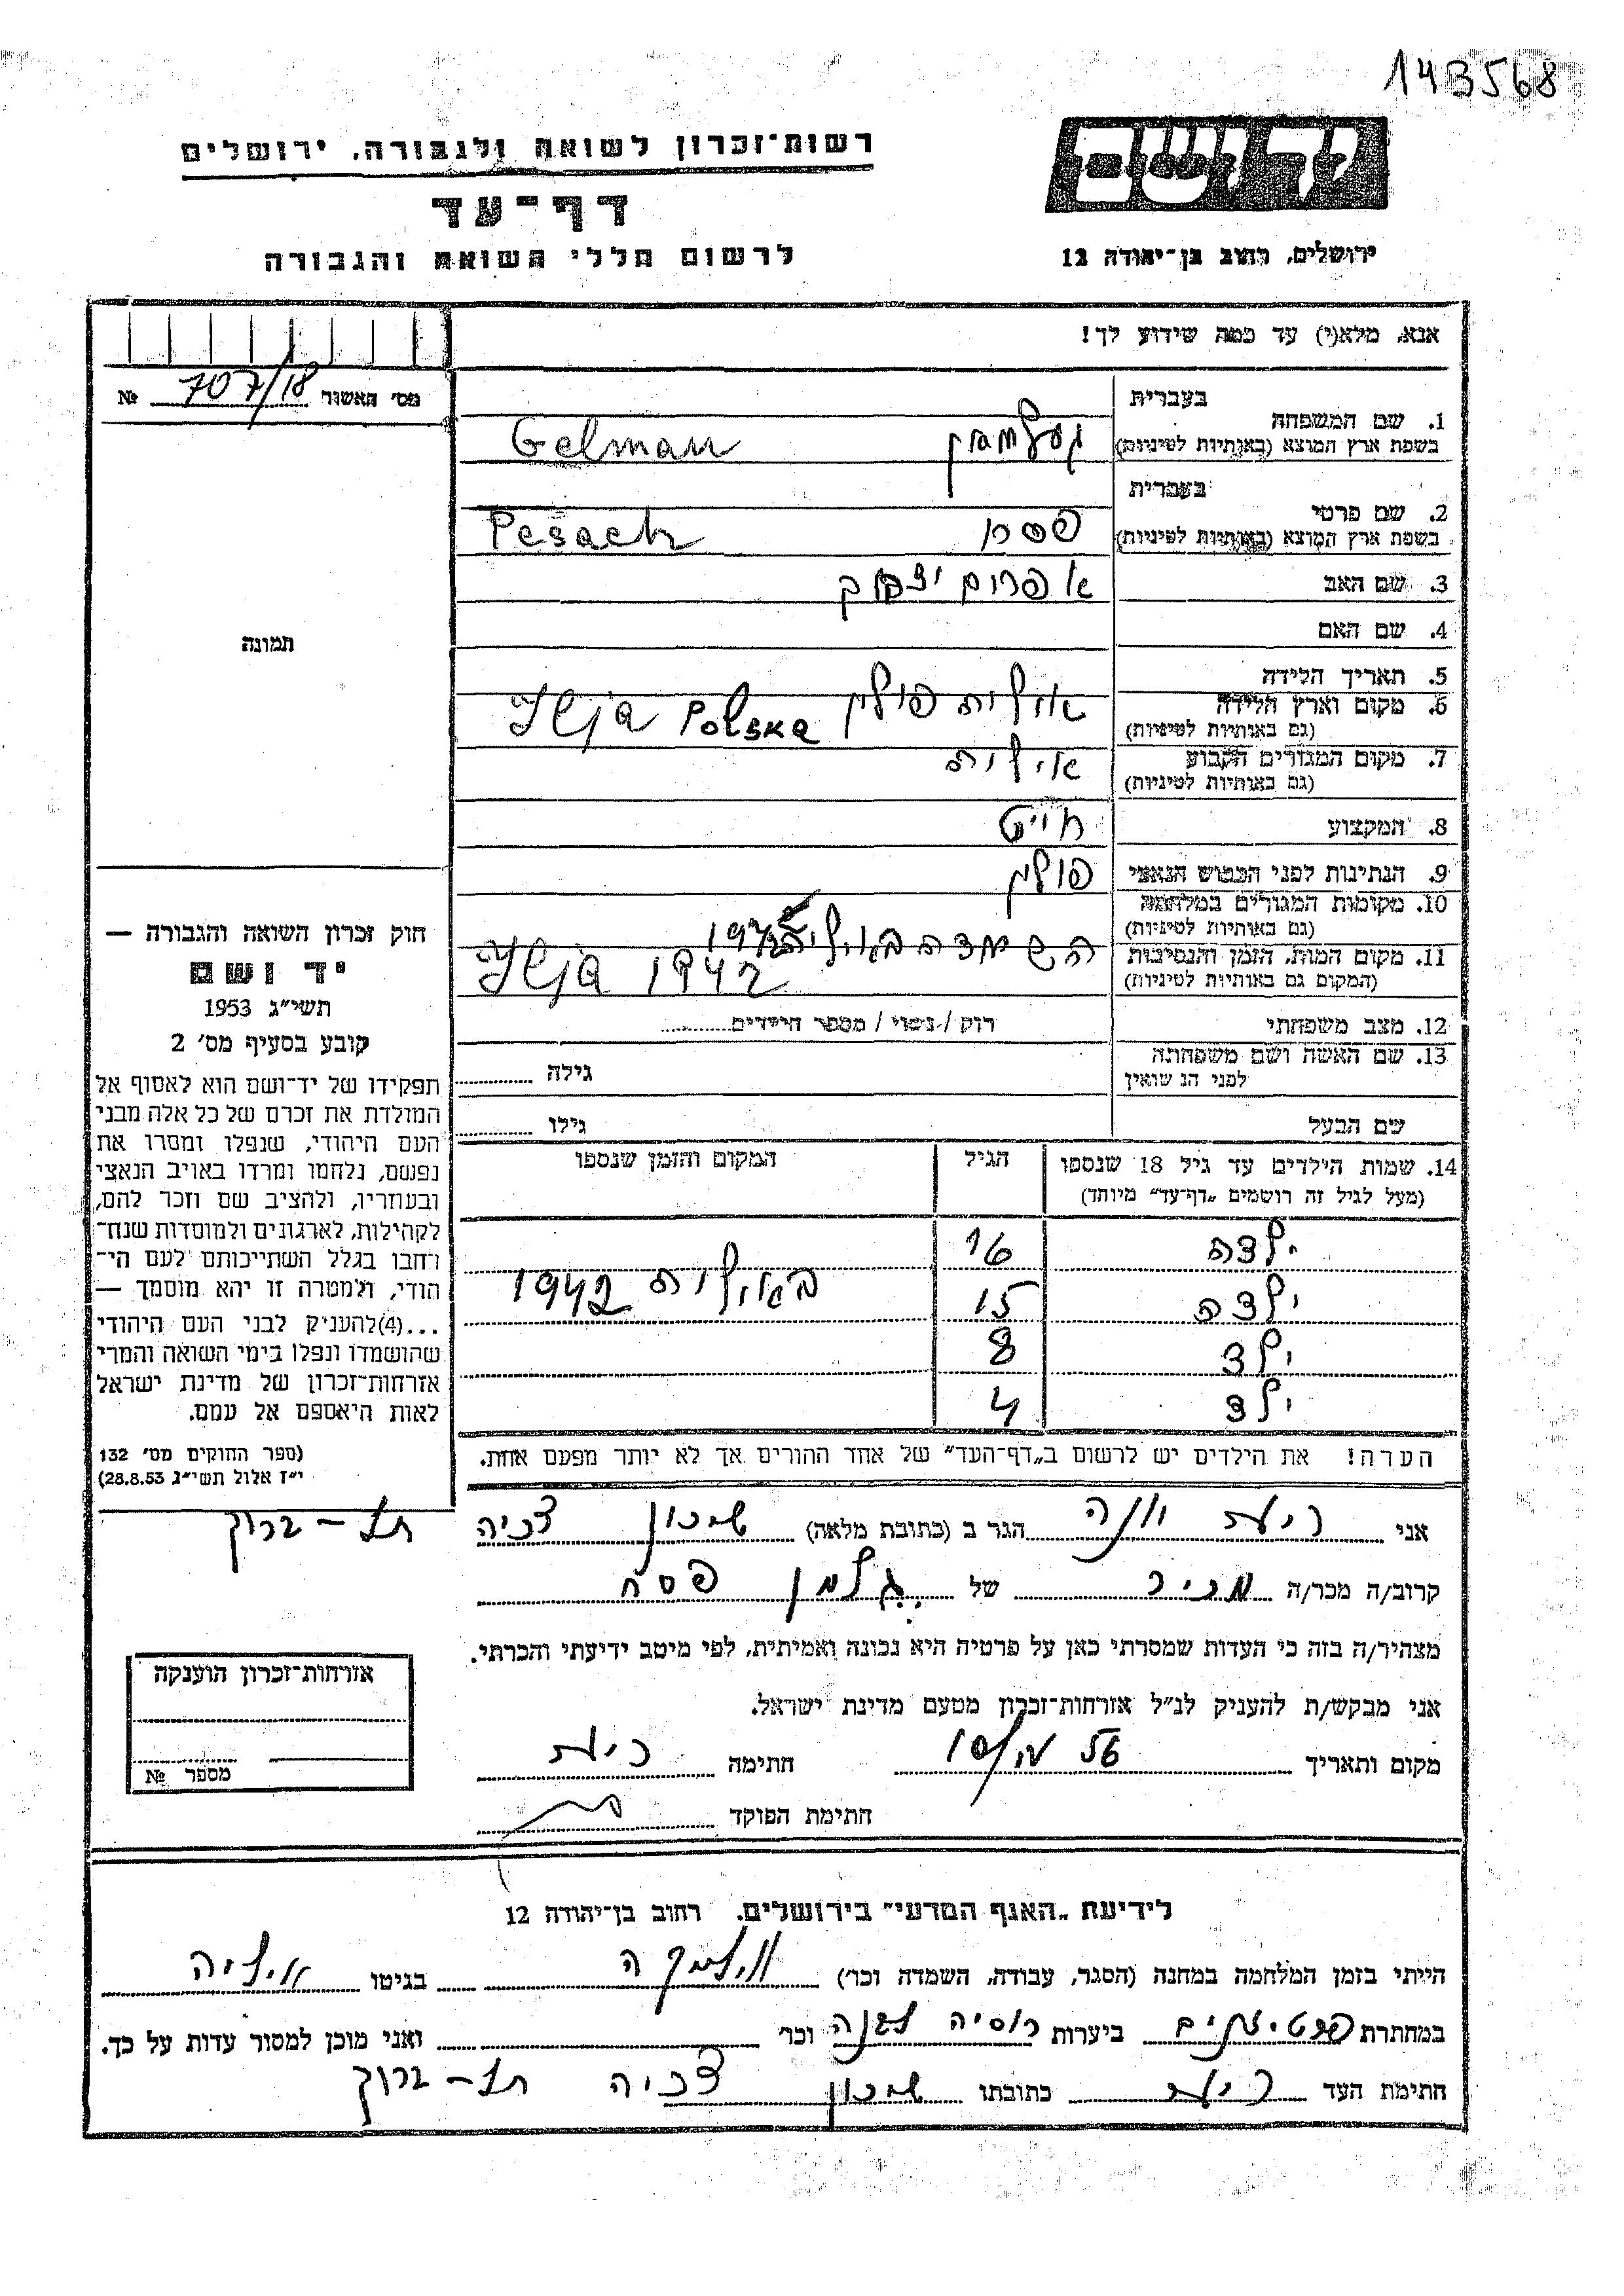 143568
יד ושם
רשות־זכרון לשואה ולגבורה, ירושלים
דף־עד
לרשום חללי השואה והגבורה
ירושלים, רחוב בן־יהודה 12
אנא, מלא(י) עד כמה שידוע לך!
מס׳ האשור 707/18 №
בעברית
1. שם המשפחה
בשפת ארץ המוצא (באותיות לטיניות)
געלמאן Gelman
בעברית
2. שם פרטי
בשפת ארץ המוצא (באותיות לטיניות)
פסח Pesach
3. שם האב אפרום יצחק
4. שם האם
5. תאריך הלידה
6. מקום וארץ הלידה
(גם באותיות לטיניות)
פולין Polska
7. מקום המגורים הקבוע
(גם באותיות לטיניות)
8. המקצוע חייט
9. הנתינות לפני הכבוש הנאצי פולין
10. מקומות המגורים במלחמה
(גם באותיות לטיניות)
11. מקום המות, הזמן והנסיבות
(המקום גם באותיות לטיניות)
1942
12. מצב משפחתי רווק / נשוי / מספר הילדים
13. שם האשה ושם משפחתה
לפני הנשואין
גילה
שם הבעל גילו
14. שמות הילדים עד גיל 18 שנספו
(מעל לגיל זה רושמים „דף־עד״ מיוחד)
הגיל
המקום והזמן שנספו
ילדה 16
ילדה 15 1942
ילד 8
ילד 4
הערה! את הילדים יש לרשום ב„דף־העד״ של אחד ההורים אך לא יותר מפעם אחת.
תמונה
חוק זכרון השואה והגבורה —
יד ושם
תשי״ג 1953
קובע בסעיף מס׳ 2
תפקידו של יד־ושם הוא לאסוף אל
המולדת את זכרם של כל אלה מבני
העם היהודי, שנפלו ומסרו את
נפשם, נלחמו ומרדו באויב הנאצי
ובעוזריו, ולהציב שם וזכר להם,
לקהילות, לארגונים ולמוסדות שנח־
רחבו בגלל השתייכותם לעם הי־
הודי, ולמטרה זו יהא מוסמך —
...(4) להעניק לבני העם היהודי
שהושמדו ונפלו בימי השואה והמרי
אזרחות־זכרון של מדינת ישראל
לאות היאספם אל עמם.
(ספר החוקים מס׳ 132
י״ז אלול תשי״ג 28.8.53)
אני הגר ב (כתובת מלאה) שכון
קרוב/ה מכר/ה מכיר של גלמן פסח
מצהיר/ה בזה כי העדות שמסרתי כאן על פרטיה היא נכונה ואמיתית, לפי מיטב ידיעתי והכרתי.
אני מבקש/ת להעניק לנ״ל אזרחות־זכרון מטעם מדינת ישראל.
מקום ותאריך חתימה
חתימת הפוקד
אזרחות־זכרון הוענקה
מספר №
לידיעת „האגף המדעי״ בירושלים, רחוב בן־יהודה 12
הייתי בזמן המלחמה במחנה (הסגר, עבודה, השמדה וכר׳) בגיטו
במחתרת פרטיזנים ביערות רוסיה לבנה וכר׳ ואני מוכן למסור עדות על כך.
חתימת העד כתובתו שכון